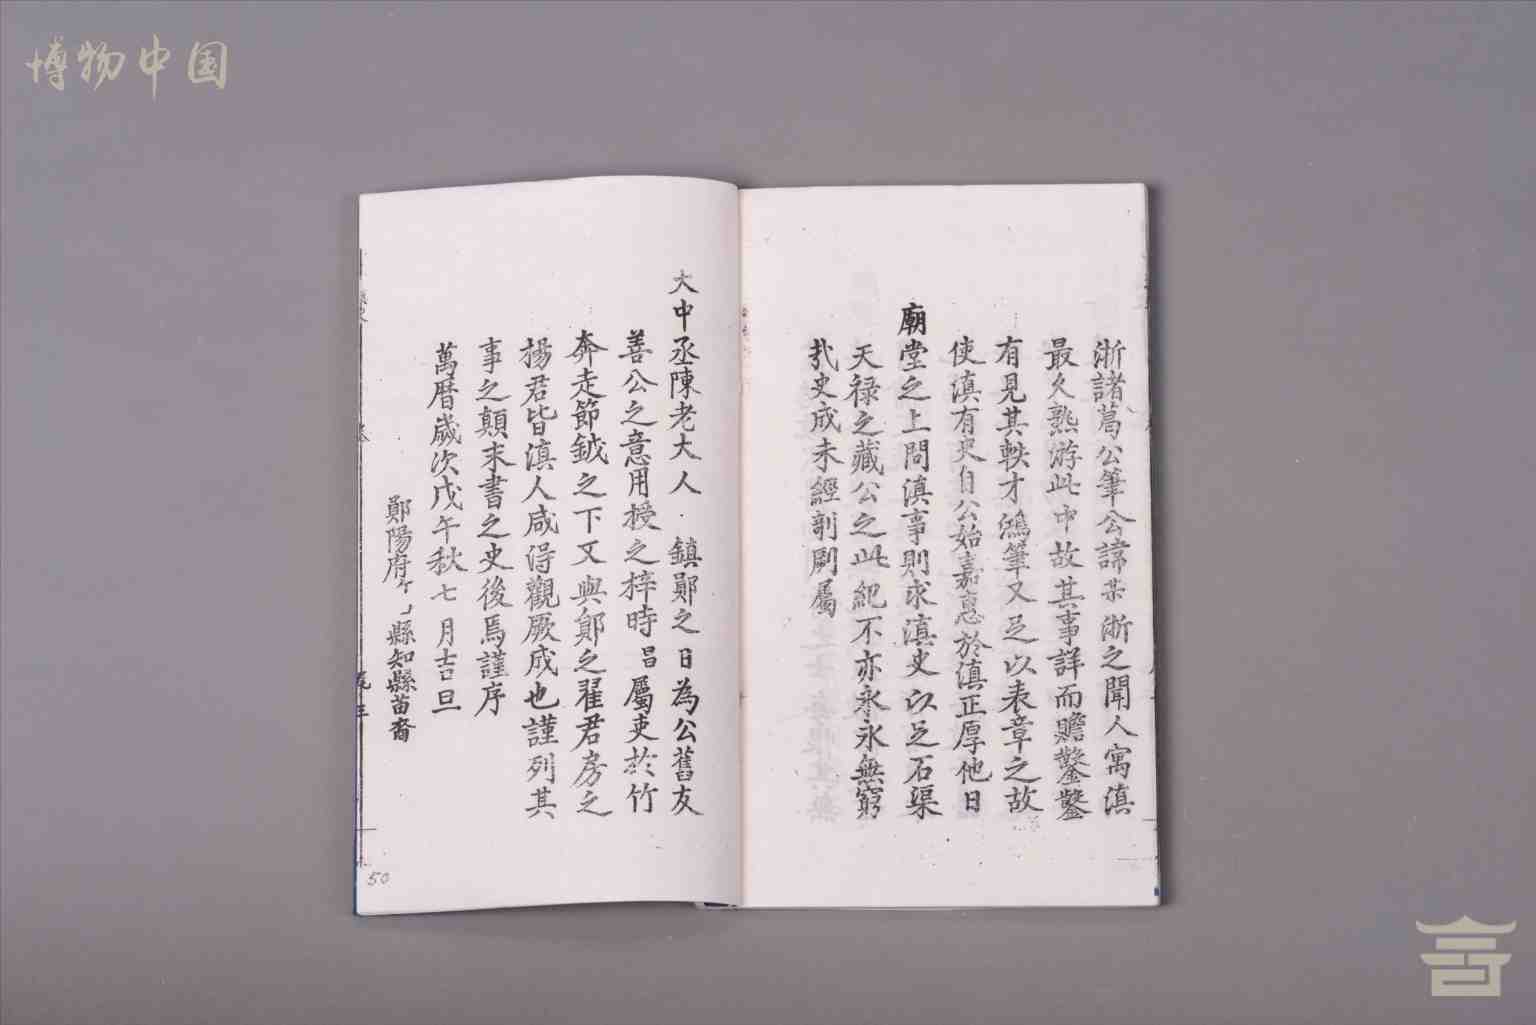 博物中国
浙諸葛公筆公諱某浙之聞人寓滇
最久熟游此中故其事詳而贍鑿鑿
有見其軼才鴻筆又足以表章之故
使滇有史自公始嘉惠於滇正厚他日
廟堂之上問滇事則求滇史以足石渠
天禄之藏公之此紀不亦永永無窮
㢤史成未經剞劂屬
大中丞陳老大人 鎮鄖之日為公舊友
善公之意用授之梓時昌屬吏於竹
奔走節鉞之下又與鄖之翟君房之
楊君皆滇人咸得觀厥成也謹列其
事之顛末書之史後焉謹序
萬曆歲次戊午秋七月吉旦
鄖陽府竹 縣知縣苗裔
50